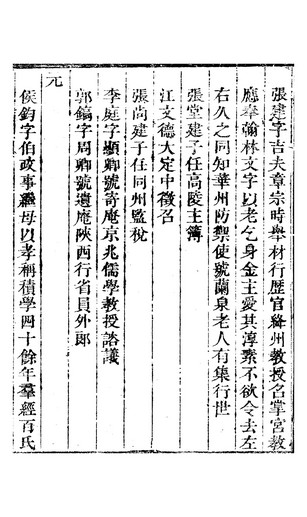 張建字吉夫章宗時舉材行歷官絳州教授召掌宮教
應奉翰林文字以老乞身金主愛其淳素不欲令去左
右久之同知華州防禦使號蘭泉老人有集行世
張堂建子任高陵主簿
江文德大定中徵名
張尚建子任同州監稅
李庭字顯卿號寄庵京兆儒學教授諮議
郭鎬字周卿號遺庵陝西行省員外郎
元
侯鈞字伯政事繼母以孝稱積學四十餘年羣經百氏